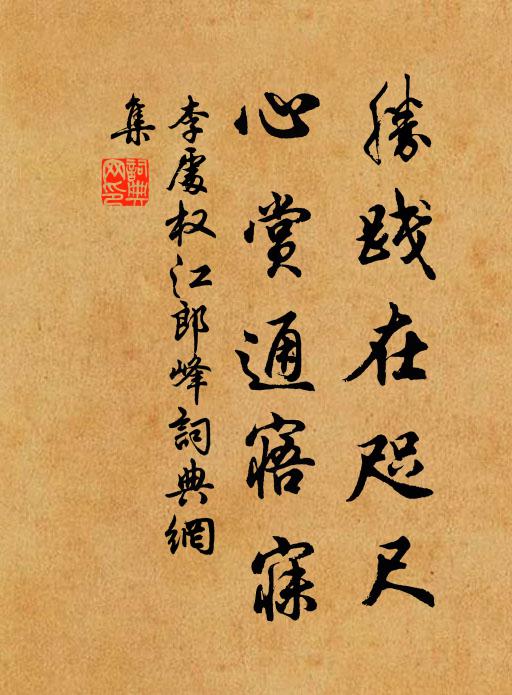 勝践在咫尺
心賞通寤寐
李處权江郎峰詞典網
集
詞典
网印